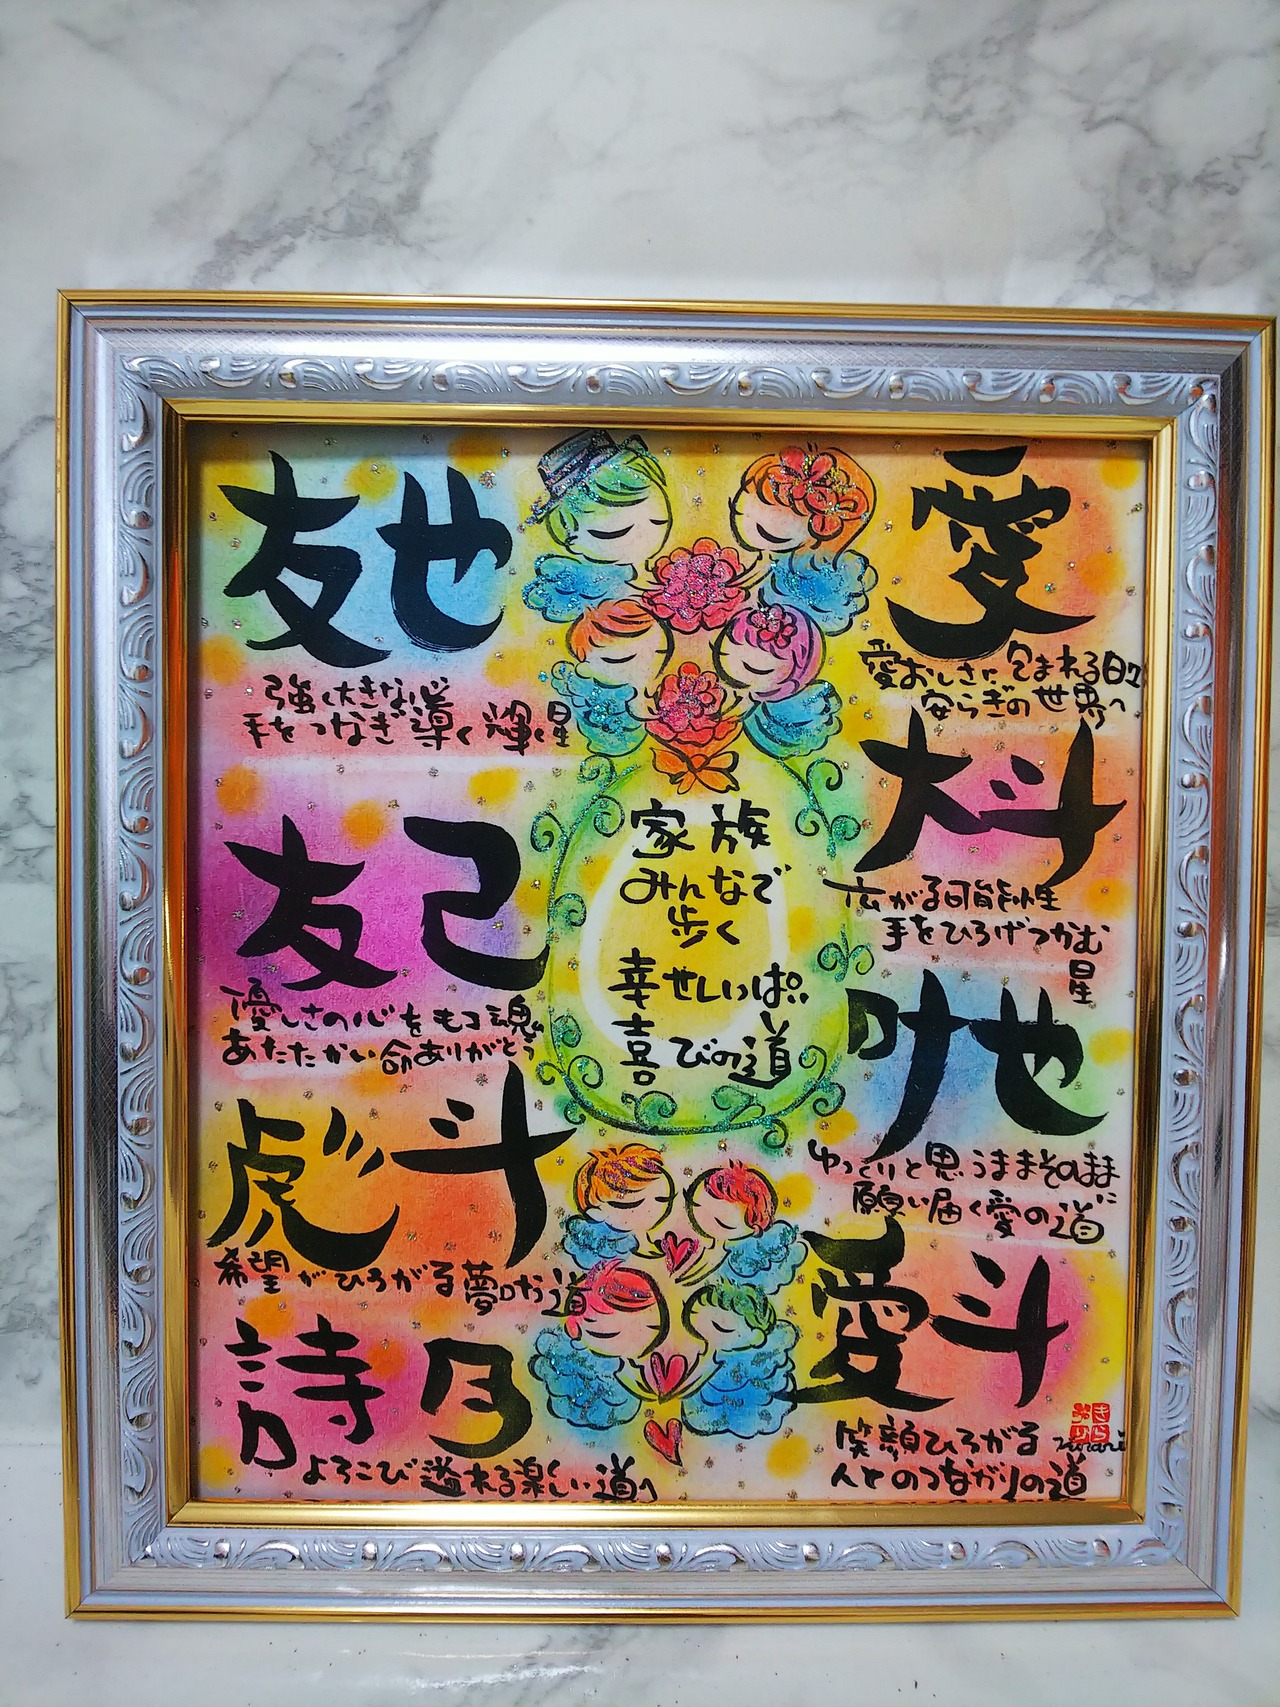 友也
強く大きな心
手をつなぎ導く輝く星
友己
優しさの心をもつ魂へ
あたたかい命ありがとう
虎斗
希望がひろがる夢叶う道
詩月
よろこび溢れる楽しい道へ
家族
みんなで
歩く
幸せいっぱい
喜びの道
愛
愛おしさに包まれる日々
安らぎの世界へ
大斗
広がる可能性
手をひろげつかむ
星
叶也
ゆっくりと思うままそのままに
願い届く愛の道
愛斗
笑顔ひろがる
人とのつながりの道
きらり